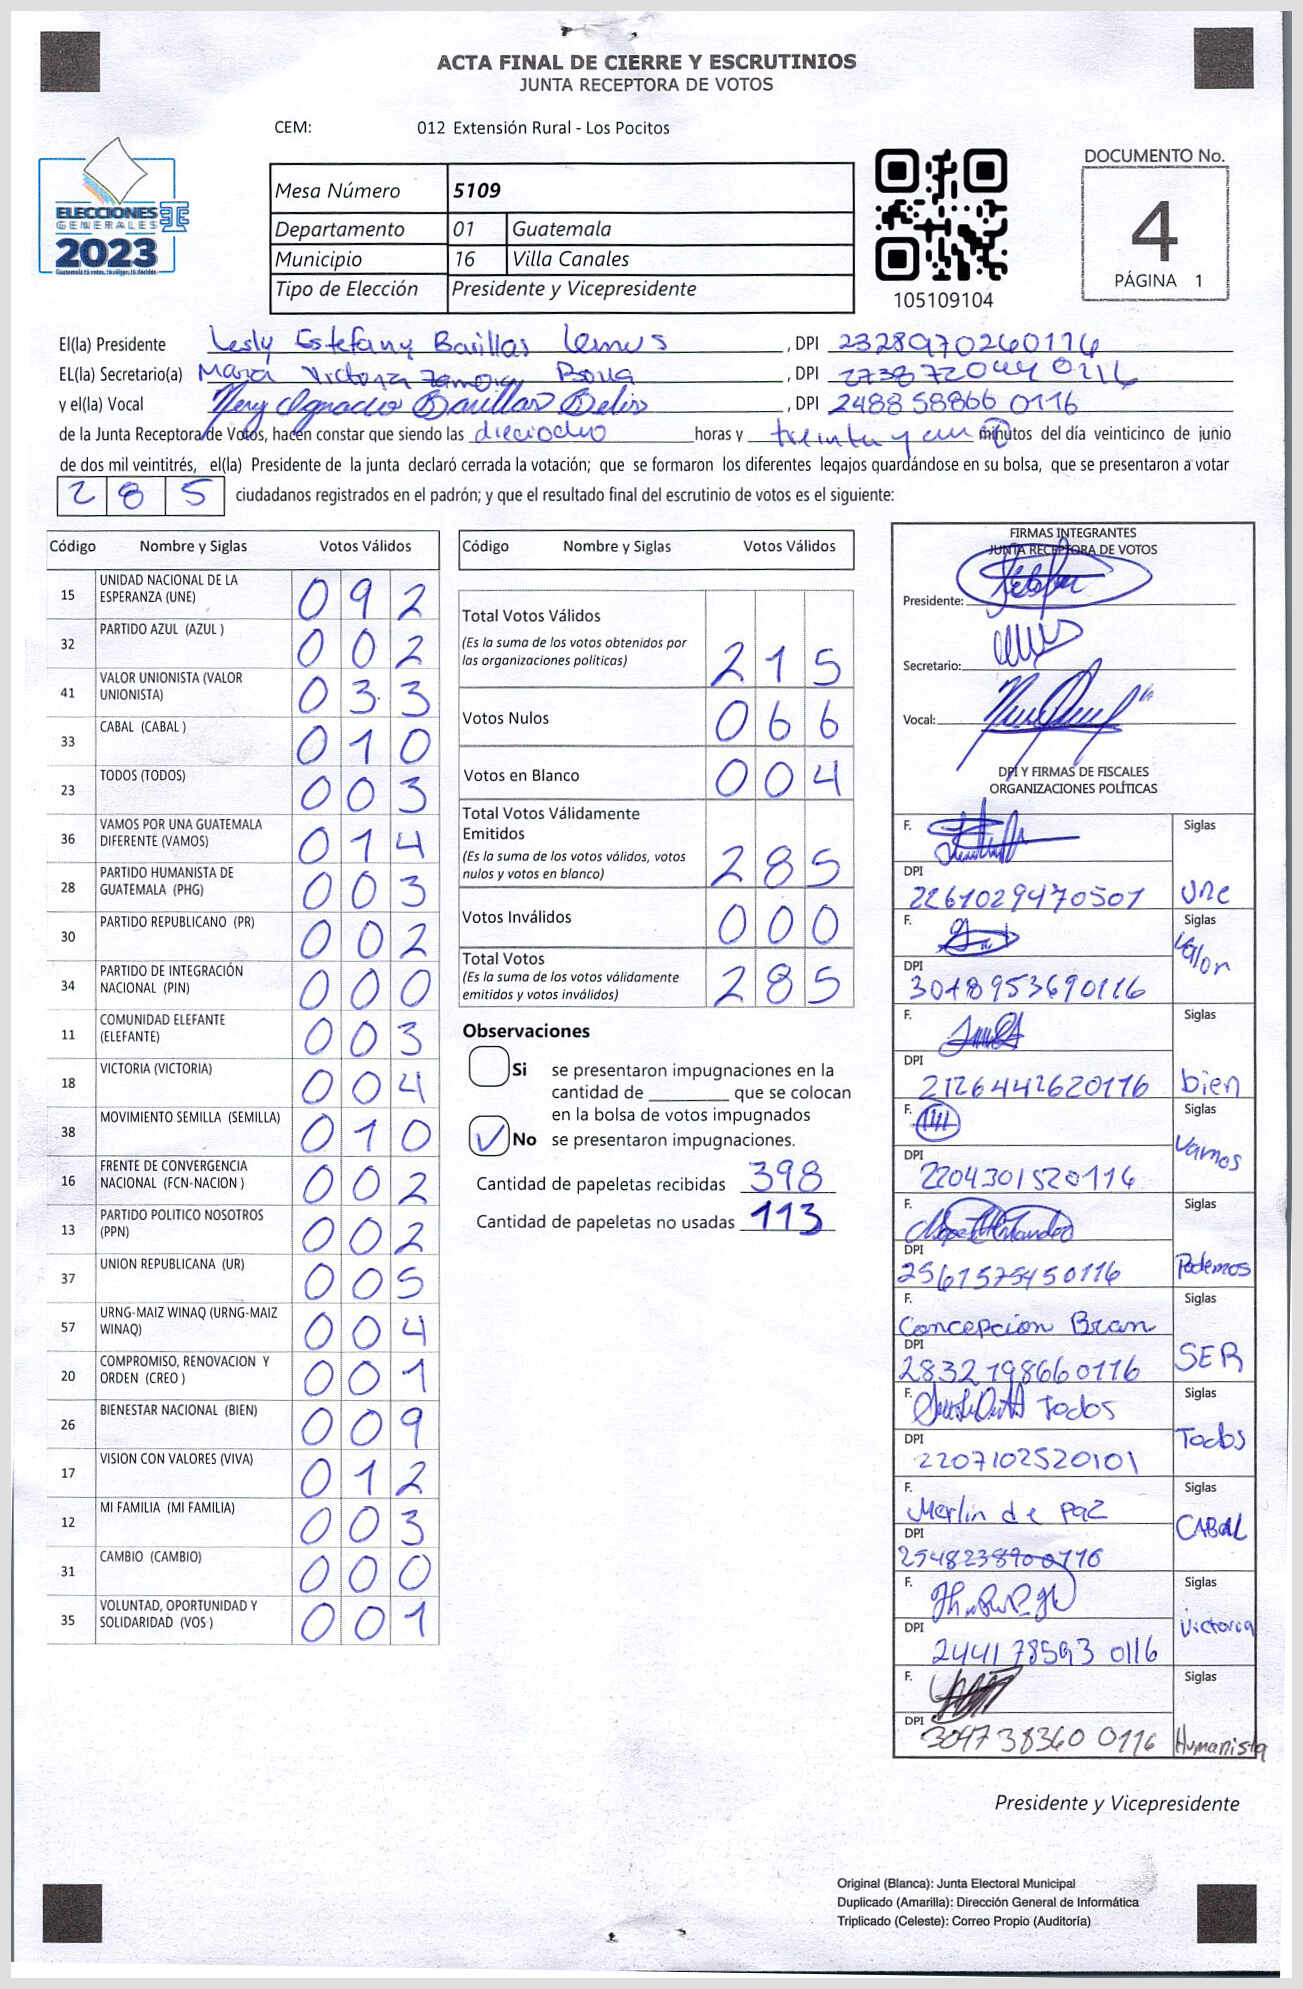 ACTA FINAL DE CIERRE Y ESCRUTINIOS
JUNTA RECEPTORA DE VOTOS
CEM: 012 Extensión Rural - Los Pocitos
ELECCIONES
GENERALES
2023
Mesa Número 5109
Departamento 01 Guatemala
Municipio 16 Villa Canales
Tipo de Elección Presidente y Vicepresidente
105109104
DOCUMENTO No.
4
PÁGINA 1
El(la) Presidente Lesly Estefany Barillas Lemus , DPI 2328970260116
EL(la) Secretario(a) María Victoria Zamora , DPI 2738720440116
y el(la) Vocal Nery Ignacio Barillas , DPI 2488588660116
de la Junta Receptora de Votos, hacen constar que siendo las dieciocho horas y treinta y un minutos del día veinticinco de junio
de dos mil veintitrés, el(la) Presidente de la junta declaró cerrada la votación; que se formaron los diferentes legajos guardándose en su bolsa, que se presentaron a votar
285 ciudadanos registrados en el padrón; y que el resultado final del escrutinio de votos es el siguiente:
Código Nombre y Siglas Votos Válidos
15 UNIDAD NACIONAL DE LA ESPERANZA (UNE) 092
32 PARTIDO AZUL (AZUL ) 002
41 VALOR UNIONISTA (VALOR UNIONISTA) 033
33 CABAL (CABAL ) 010
23 TODOS (TODOS) 003
36 VAMOS POR UNA GUATEMALA DIFERENTE (VAMOS) 014
28 PARTIDO HUMANISTA DE GUATEMALA (PHG) 003
30 PARTIDO REPUBLICANO (PR) 002
34 PARTIDO DE INTEGRACIÓN NACIONAL (PIN) 000
11 COMUNIDAD ELEFANTE (ELEFANTE) 003
18 VICTORIA (VICTORIA) 004
38 MOVIMIENTO SEMILLA (SEMILLA) 010
16 FRENTE DE CONVERGENCIA NACIONAL (FCN-NACION ) 002
13 PARTIDO POLITICO NOSOTROS (PPN) 002
37 UNION REPUBLICANA (UR) 005
57 URNG-MAIZ WINAQ (URNG-MAIZ WINAQ) 004
20 COMPROMISO, RENOVACION Y ORDEN (CREO ) 001
26 BIENESTAR NACIONAL (BIEN) 009
17 VISION CON VALORES (VIVA) 012
12 MI FAMILIA (MI FAMILIA) 003
31 CAMBIO (CAMBIO) 000
35 VOLUNTAD, OPORTUNIDAD Y SOLIDARIDAD (VOS ) 001
Código Nombre y Siglas Votos Válidos
Total Votos Válidos
(Es la suma de los votos obtenidos por
las organizaciones políticas) 215
Votos Nulos 066
Votos en Blanco 004
Total Votos Válidamente
Emitidos
(Es la suma de los votos válidos, votos
nulos y votos en blanco) 285
Votos Inválidos 000
Total Votos
(Es la suma de los votos válidamente
emitidos y votos inválidos) 285
Observaciones
Si se presentaron impugnaciones en la
cantidad de ________ que se colocan
en la bolsa de votos impugnados
No se presentaron impugnaciones.
Cantidad de papeletas recibidas 398
Cantidad de papeletas no usadas 113
FIRMAS INTEGRANTES
JUNTA RECEPTORA DE VOTOS
Presidente:
Secretario:
Vocal:
DPI Y FIRMAS DE FISCALES
ORGANIZACIONES POLÍTICAS
F. Siglas
DPI
2261029470501 Une
F. Siglas
DPI Valor
3018953690116
F. Siglas
DPI
2126442620116 bien
F. Siglas
DPI Vamos
2204301520116
F. Siglas
DPI
2561575450116 Podemos
F. Siglas
Concepcion Bran
DPI
2832198660116 SER
F. Siglas
Todos
DPI Todos
2207102520101
F. Siglas
Merlin de Paz
DPI CABAL
2548238900116
F. Siglas
DPI Victoria
2441785930116
F. Siglas
DPI
3047383600116 Humanista
Presidente y Vicepresidente
Original (Blanca): Junta Electoral Municipal
Duplicado (Amarilla): Dirección General de Informática
Triplicado (Celeste): Correo Propio (Auditoría)